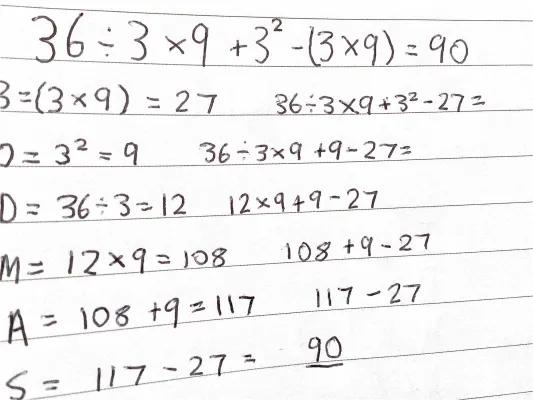 36 ÷ 3 × 9 + 3² - (3 × 9) = 90
B = (3 × 9) = 27 36 ÷ 3 × 9 + 3² - 27 =
O = 3² = 9 36 ÷ 3 × 9 + 9 - 27 =
D = 36 ÷ 3 = 12 12 × 9 + 9 - 27
M = 12 × 9 = 108 108 + 9 - 27
A = 108 + 9 = 117 117 - 27
S = 117 - 27 = 90